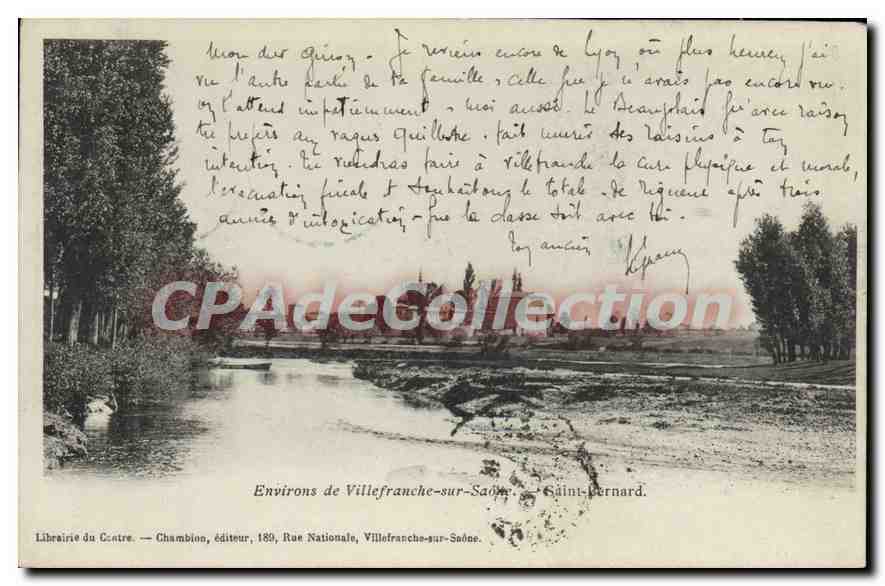 Je reviens encore de Lyon où plus heureux j'ai
vu l'autre partie de ta famille, celle que je n'avais pas encore vu.
t'attend impatiemment, moi aussi. Le Beaujolais qu'avec raison
tu fait murir des raisins à ton
intention. Tu viendras faire à villefranche la cure physique et morale,
l'évacuation totale de rigueur après trois
années d'intoxication, que la classe soit avec toi.
Ton ancien
CPA De Collection.com
Environs de Villefranche-sur-Saône. — Saint-Bernard.
Librairie du Centre. — Chambion, éditeur, 189, Rue Nationale, Villefranche-sur-Saône.